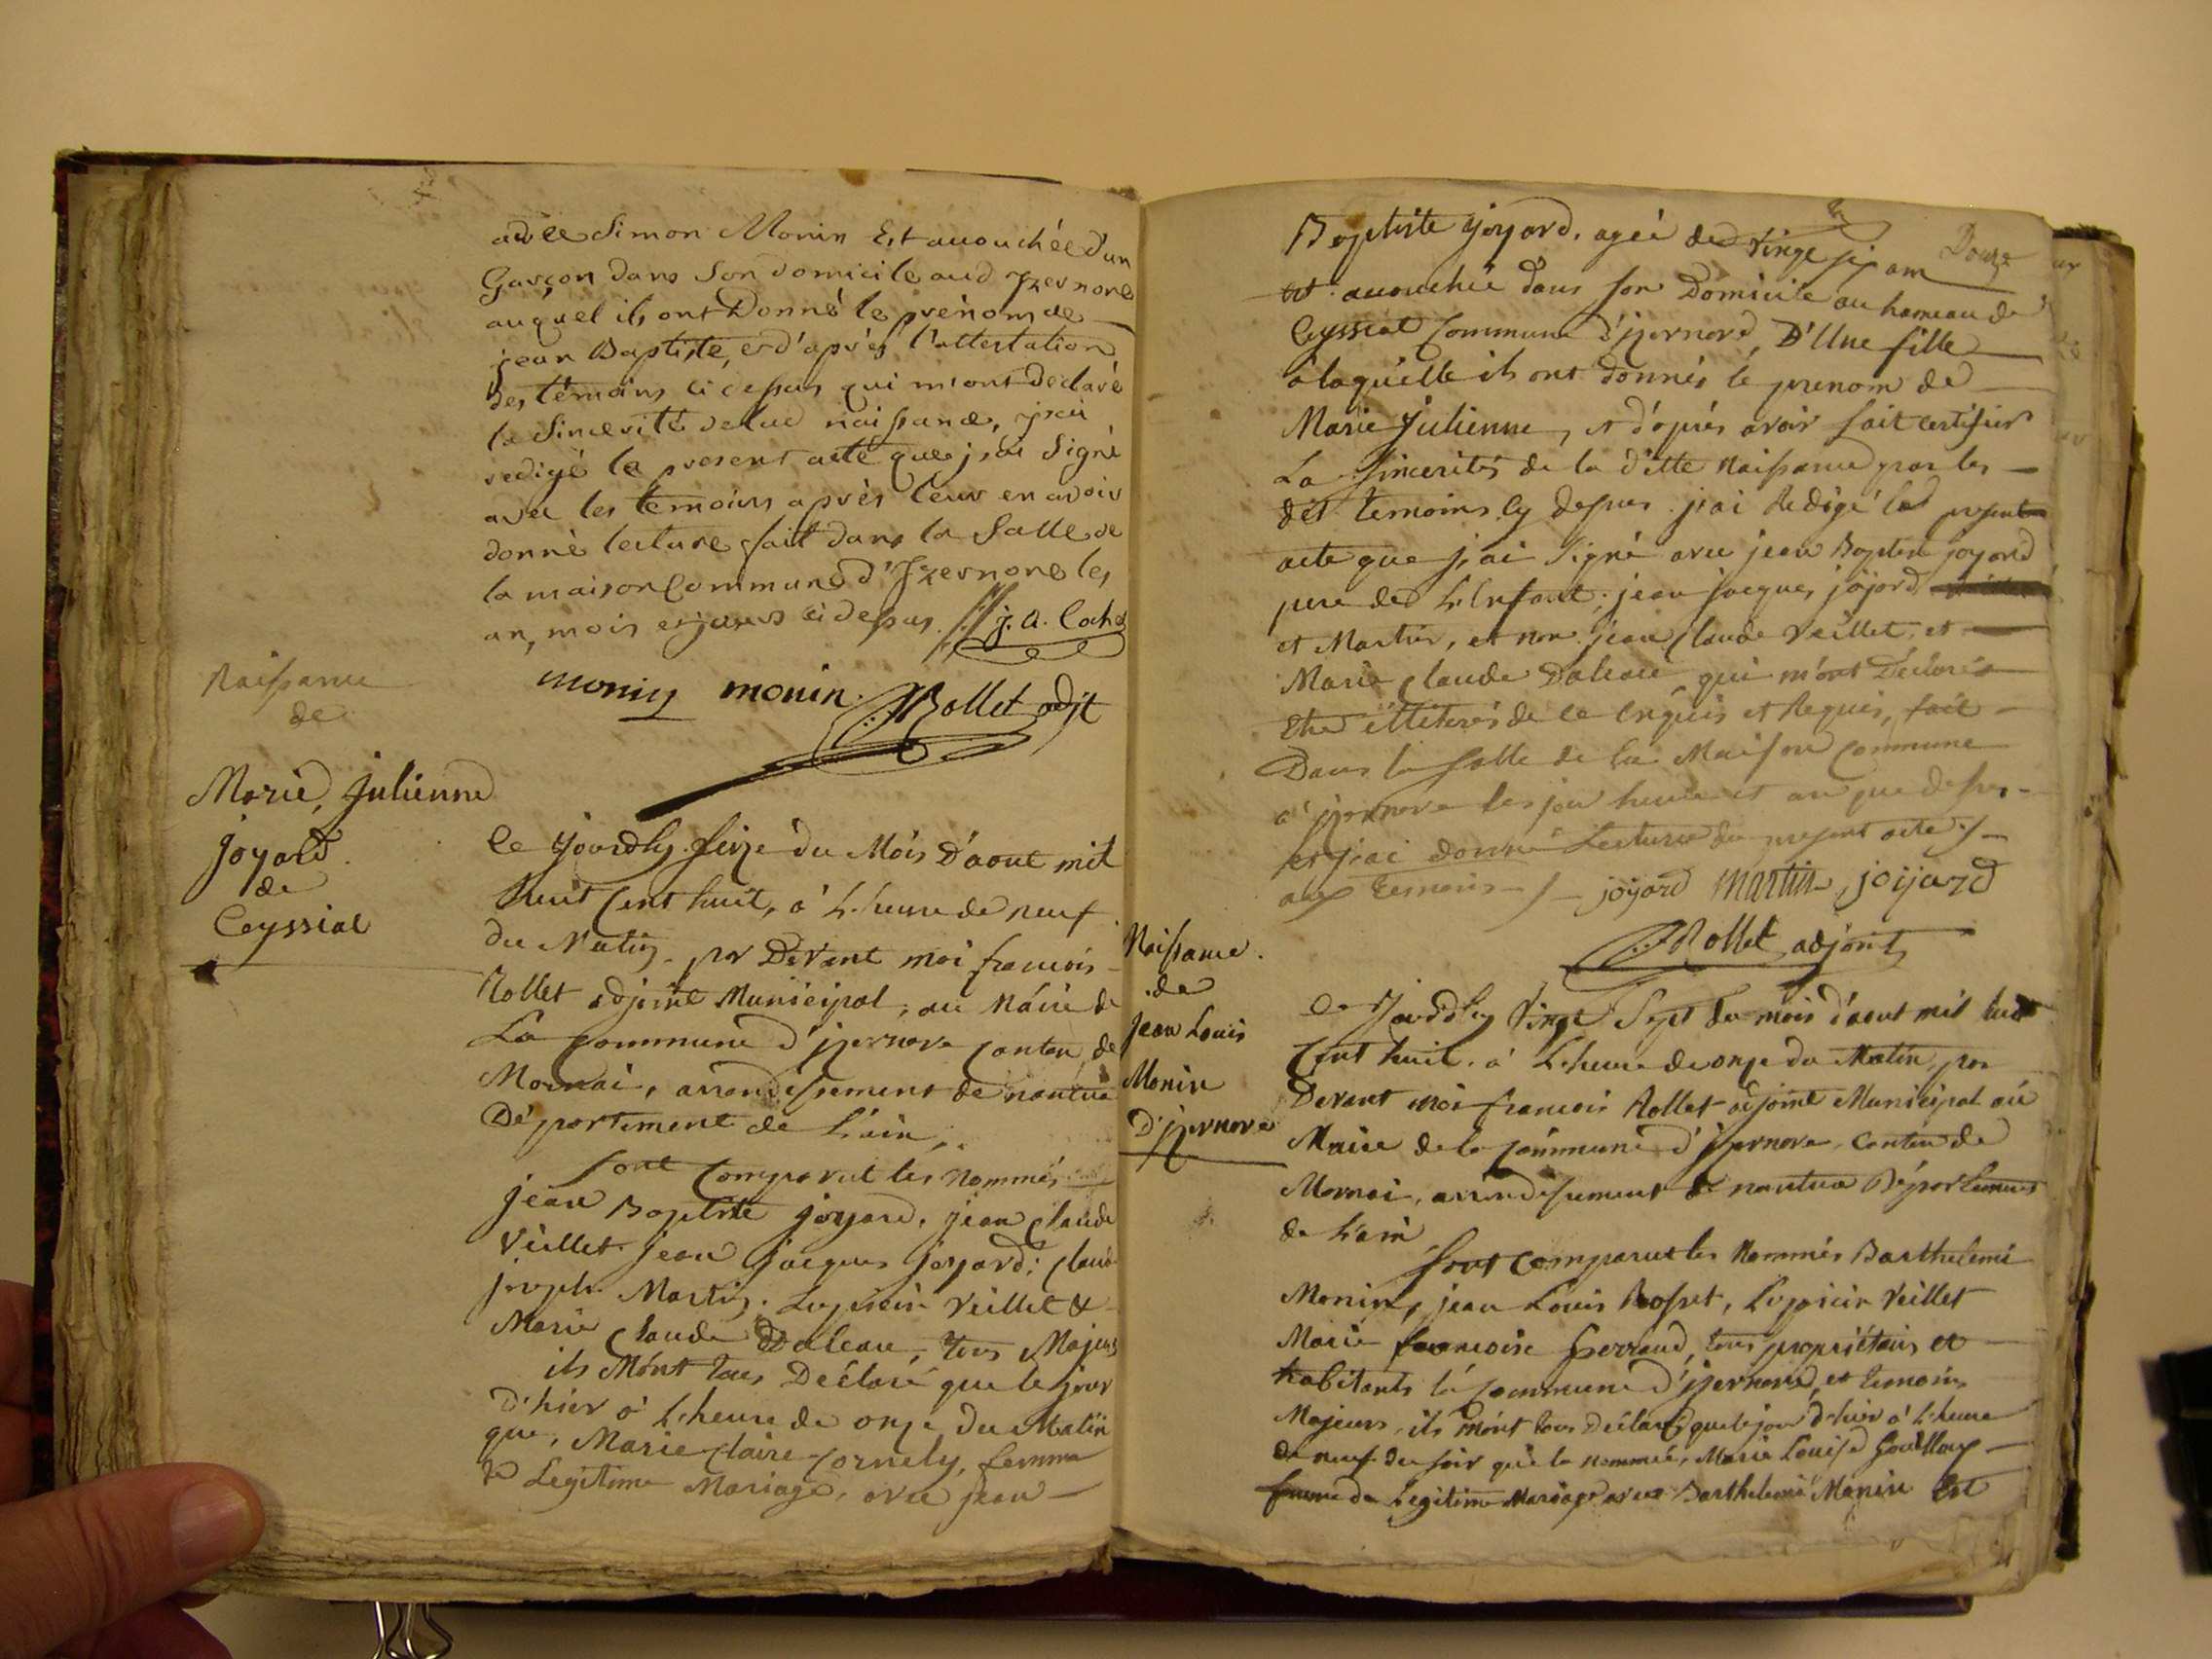 avec Simon Monin Est accouchée d'un
Garçon dans Son domicile aud Izernore
auquel ils ont Donné le prénom de
jean Baptiste, et d'après l'attestation
des témoins ci dessus qui m'ont declaré
la Sincerité de lad naissance, j'ai
redigé le present acte que j'ai Signé
avec les temoins après leur en avoir
donné lecture fait dans la Salle de
la maison Commune d'Izernore les
an, mois et jours ci dessus. j. a. Cocha
monin monin. Rollet adjt
Naissance
de
Marie, Julienne
joyard.
de
Ceyssiat
Ce jourdhuy seize du Mois D'aout mil
huit Cent huit, à L'heure de neuf
du Matin par Devant moi francois
Rollet adjoint Municipal, au Maire de
La Commune d'izernore Canton de
Mornai, arrondissement de nantua
Département de L'ain,
sont Comparut les Nommés
jean Baptiste joyard, jean Claude
Veillet jean jacques joyard; Claude
joseph Martin. Lupicin Veillet &
Marie Claude Daleau, tous Majeurs
ils M'ont tous Déclaré que le jour
d'hier à L'heure de onze du Matin
que, Marie Claire Cornely, femme
de Legitime Mariage, avec jean
Douze
Baptiste joyard. agée de Vingt six ans
est accouchée dans son Domicile au hameau de
Ceyssiat Commune d'izernore, D'Une fille
à laquelle ils ont donnés le prenom de
Marie Julienne, et d'aprés avoir fait certifier
La sincerités de la d'itte Naissance par les
dit temoins Cy dessus j'ai Redigé le present
acte que j'ai Signé avec jean Baptiste joyard
pere de L'Enfant; jean jacques joyard
et Martin, et non jean Claude Veillet, et
Marie Claude Daleau qui m'ont Déclarés
Etre illiterés de ce Enquis et Requis, fait
Dans la salle de la Maison Commune
d'izernore les jour heure et an que dessus
et j'ai donné Lecture du present acte
aux temoins joyard martin joyard
Rollet adjoint
Naissance.
de
jean Louis
Monin
D'izernore
Ce Jourdhuy Vingt Sept du mois d'aout mil huit
Cent huit. à L'heure de onze du Matin, par
Devant moi francois Rollet adjoint Municipal au
Maire de la Commune d'izernore, Canton de
Mornai, arrondissement de nantua Département
de L'ain
sont comparut les Nommés Barthelemi
Monin, jean Louis Rosset, Lupicin Veillet
Marie francoise ferrand, tous propriétaires et
habitants la Commune d'izernore, et temoins
Majeurs, ils m'ont tous déclaré que le jour d'hier à L'heure
de neuf du soir que la nommée, Marie Louise Gouilloux
femme de Legitime Mariage avec Barthelemi Monin Est